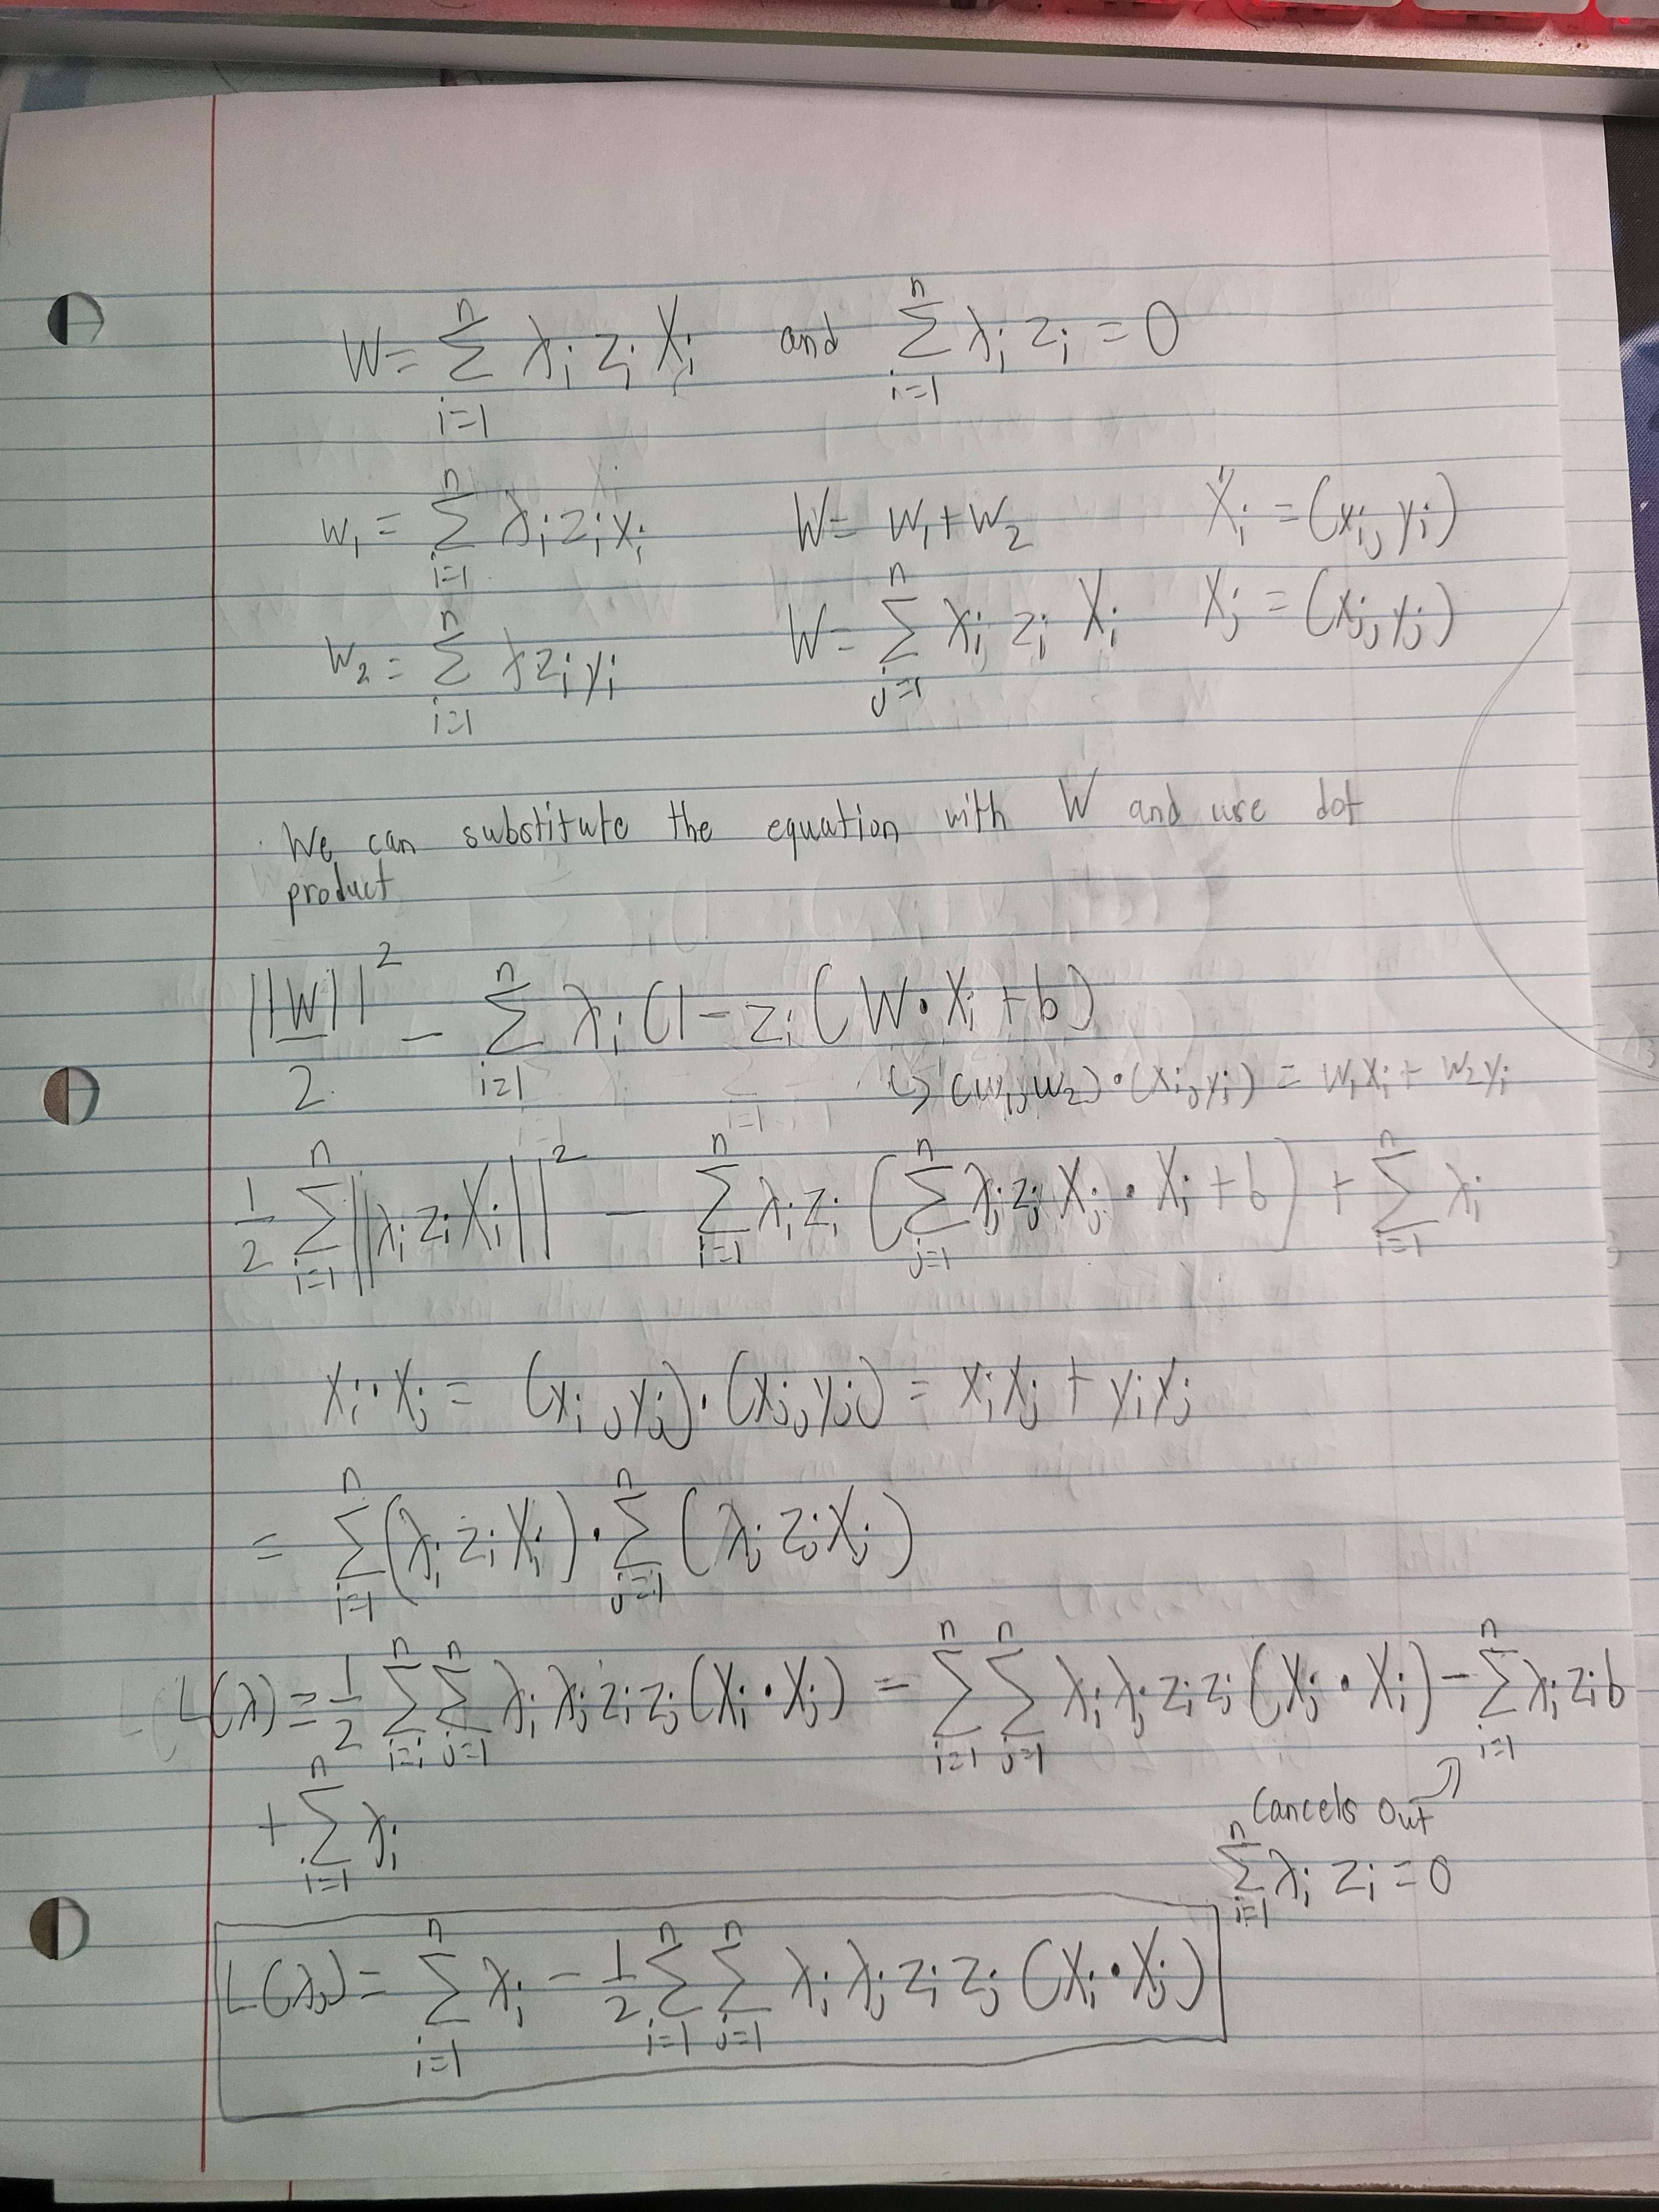 W = Σ_{i=1}^{n} λ_i z_i X_i and Σ_{i=1}^{n} λ_i z_i = 0
w_1 = Σ_{i=1}^{n} λ_i z_i x_i W = w_1 + w_2 X_i = (x_i, y_i)
w_2 = Σ_{i=1}^{n} λ z_i y_i W = Σ_{j=1}^{n} λ_i z_i X_i X_j = (x_j, y_j)
We can substitute the equation with W and use dot
product
||W||^2 / 2 - Σ_{i=1}^{n} λ_i (1 - z_i (W · X_i + b)
↳ (w_1, w_2) · (x_i, y_i) = w_1 x_i + w_2 y_i
1/2 Σ_{i=1}^{n} ||λ_i z_i X_i||^2 - Σ_{i=1}^{n} λ_i z_i (Σ_{j=1}^{n} λ_j z_j X_j · X_i + b) + Σ_{i=1}^{n} λ_i
X_i · X_j = (x_i, y_i) · (x_j, y_j) = x_i x_j + y_i y_j
= Σ_{i=1}^{n} (λ_i z_i X_i) · Σ_{j=1}^{n} (λ_j z_j X_j)
L(λ) = 1/2 Σ_{i=i}^{n} Σ_{j=1}^{n} λ_i λ_j z_i z_j (X_i · X_j) = Σ_{i=1}^{n} Σ_{j=1}^{n} λ_i λ_j z_i z_j (X_j · X_i) - Σ_{i=1}^{n} λ_i z_i b
+ Σ_{i=1}^{n} λ_i
Cancels out ↗
Σ_{i=1}^{n} λ_i z_i = 0
L(λ) = Σ_{i=1}^{n} λ_i - 1/2 Σ_{i=1}^{n} Σ_{j=1}^{n} λ_i λ_j z_i z_j (X_i · X_j)